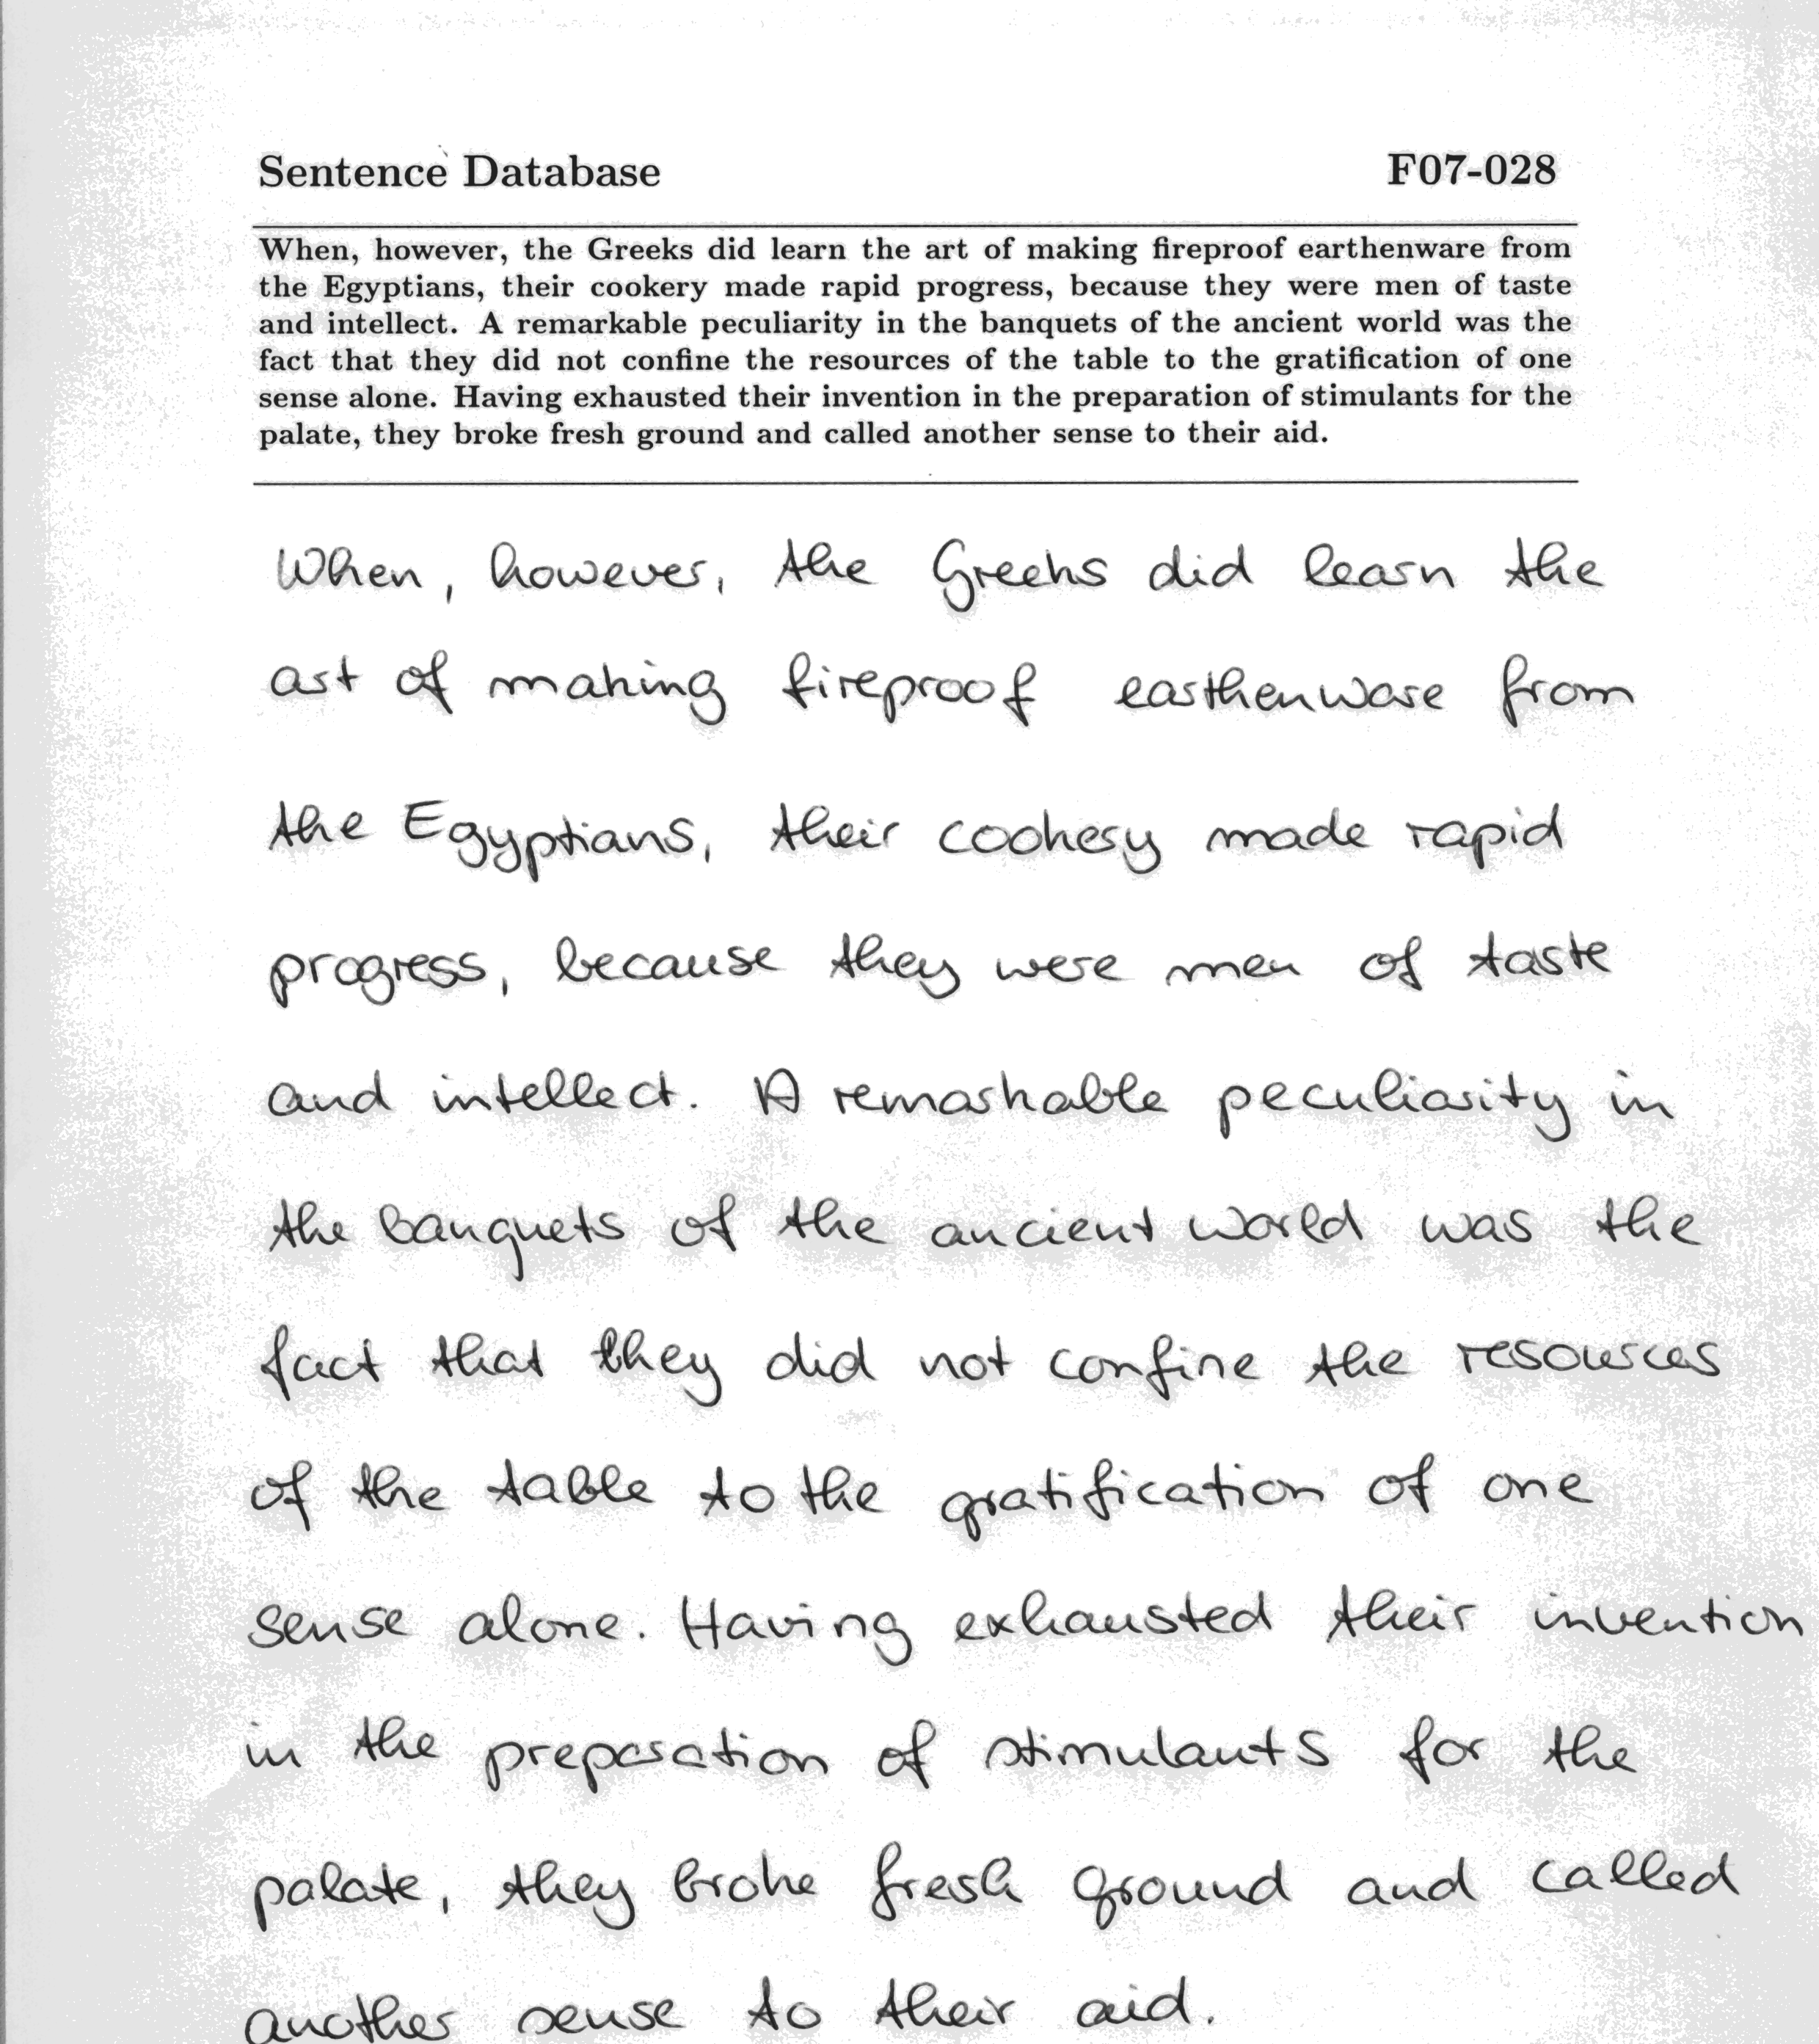 Sentence Database F07-028
When, however, the Greeks did learn the art of making fireproof earthenware from
the Egyptians, their cookery made rapid progress, because they were men of taste
and intellect. A remarkable peculiarity in the banquets of the ancient world was the
fact that they did not confine the resources of the table to the gratification of one
sense alone. Having exhausted their invention in the preparation of stimulants for the
palate, they broke fresh ground and called another sense to their aid.
When, however, the Greeks did learn the
art of making fireproof earthenware from
the Egyptians, their cookery made rapid
progress, because they were men of taste
and intellect. A remarkable peculiarity in
the banquets of the ancient world was the
fact that they did not confine the resources
of the table to the gratification of one
sense alone. Having exhausted their invention
in the preparation of stimulants for the
palate, they broke fresh ground and called
another sense to their aid.